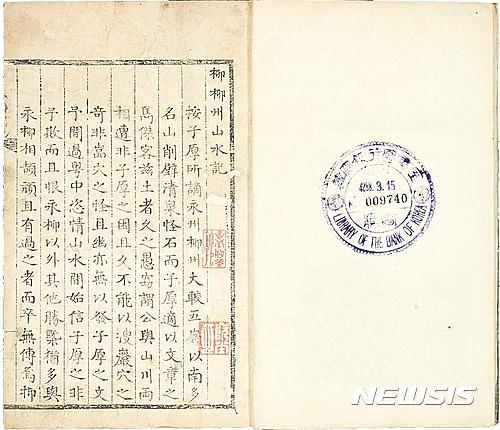 柳柳州山水記
按子厚所謫永州柳州大較五嶺以南多
名山削壁清泉怪石而子厚適以文章之
雋傑客玆土者久之愚竊謂公與山川兩
相遭非子厚之困且久不能以搜巖穴之
奇非巖穴之怪且幽亦無以發子厚之文
予間過粵中恣情山水間始信子厚之非
予欺而且恨永柳以外其他勝槩猶多與
永柳相頡頏且有過之者而卒無傳焉抑
3.15
009740
LIBRARY OF THE BANK OF KOREA
NEWSIS